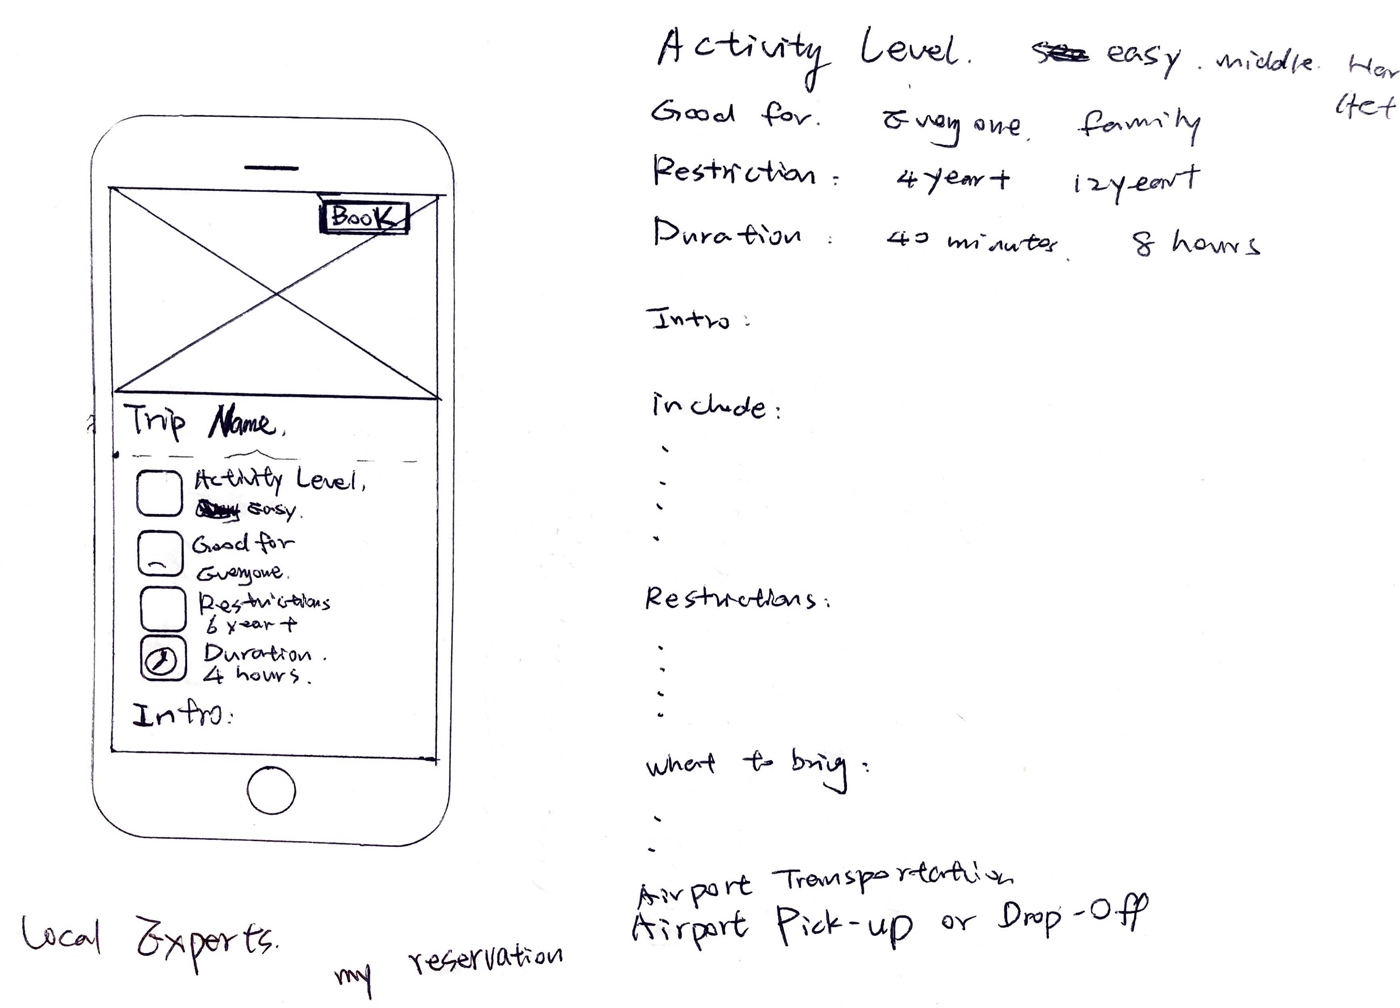 BOOK
Trip Name.
Activity Level,
Easy.
Good for
Everyone.
Restrictions
6 year +
Duration.
4 hours.
Intro:
Activity Level. easy. middle.
Good for. Everyone. family
Restriction: 4 year + 12 year +
Duration: 40 minutes. 8 hours
Intro:
include:
Restrictions:
what to brig:
Airport Transportation
Airport Pick-up or Drop-Off
Local Experts.
my reservation